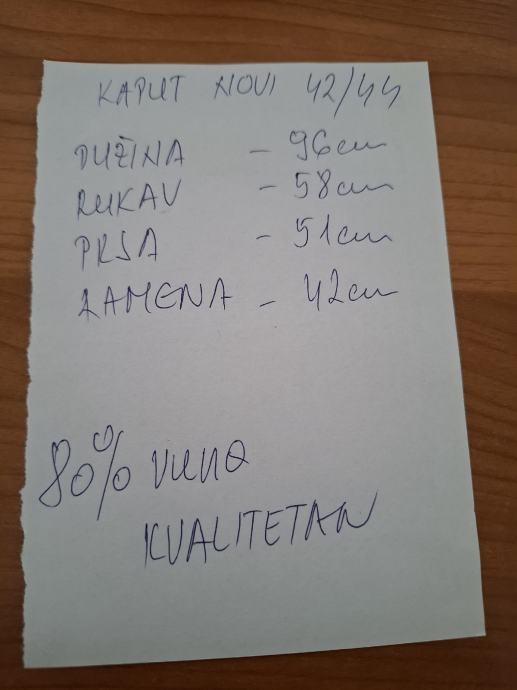 KAPUT NOVI 42/44
DUŽINA - 96cm
RUKAV - 58cm
PRSA - 51cm
RAMENA - 42cm
80% vuna
KVALITETAN